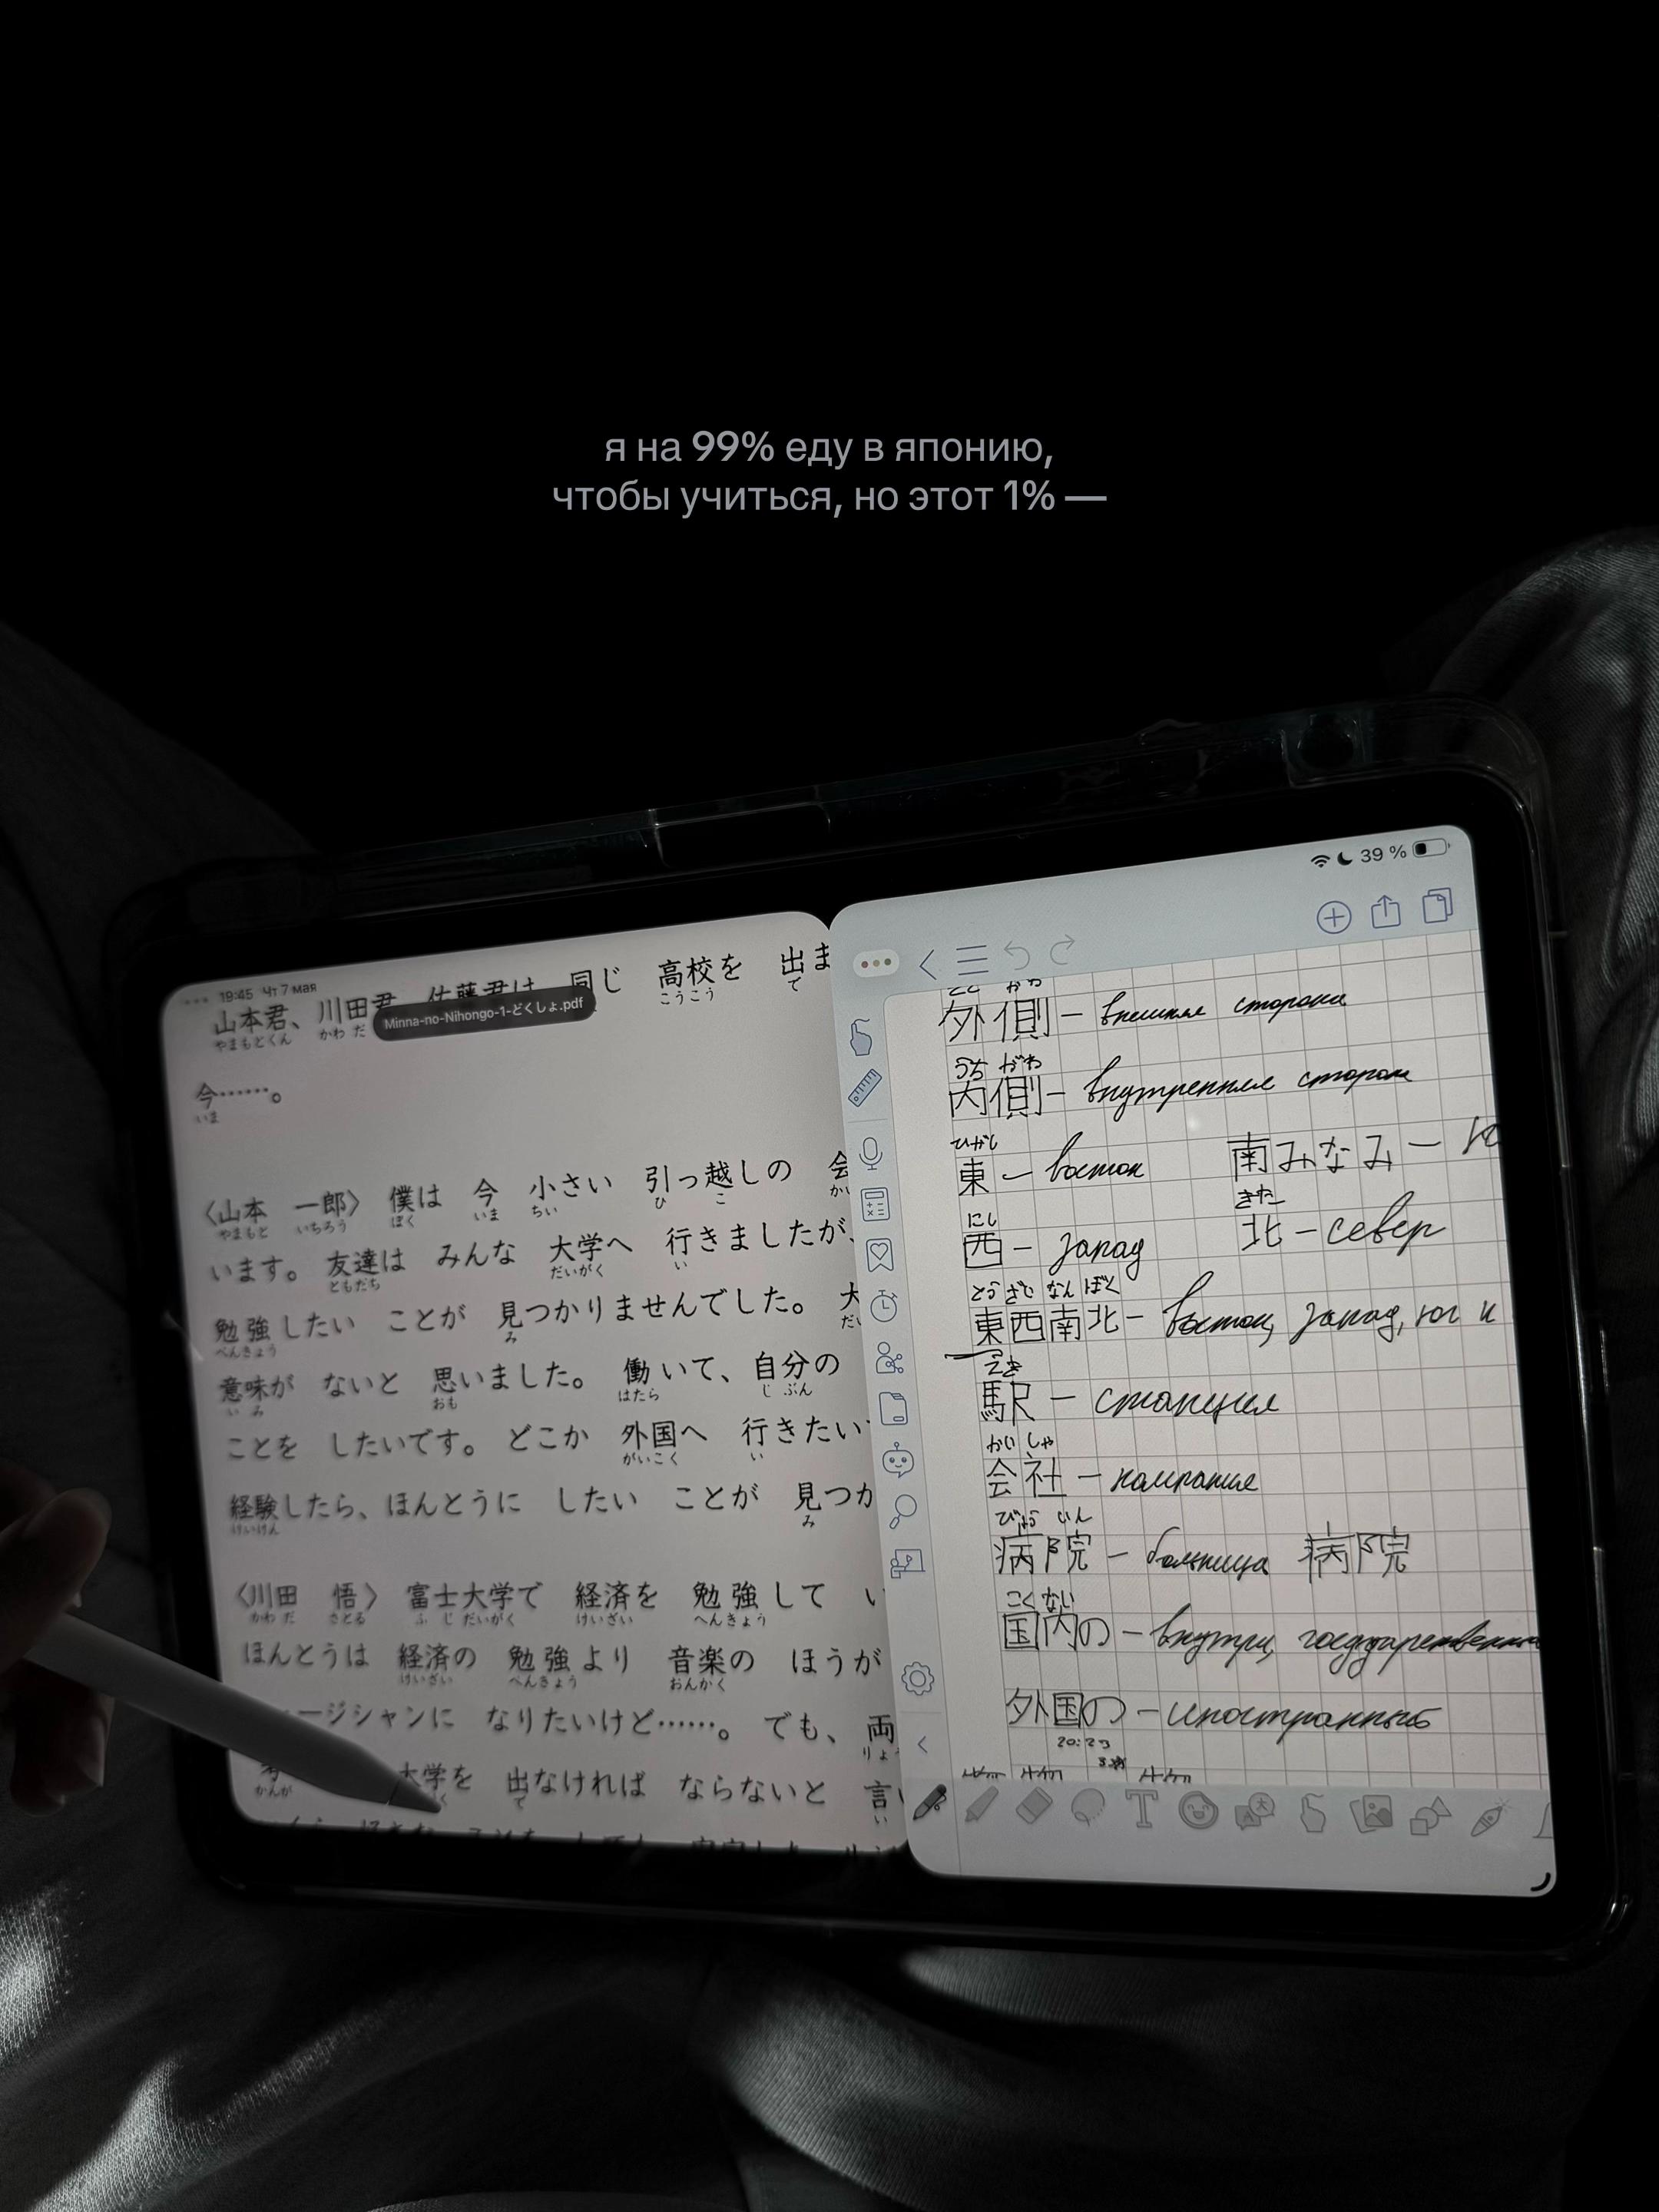 я на 99% еду в японию,
чтобы учиться, но этот 1% —
19:45 Чт 7 мая
39 %
Minna-no-Nihongo-1-どくしょ.pdf
山本君、川田君、佐藤君は 同じ 高校を 出ま
やまもとくん かわ だ こうこう で
今……。
いま
〈山本 一郎〉 僕は 今 小さい 引っ越しの 会
やまもと いちろう ぼく いま ちい ひ こ かい
います。 友達は みんな 大学へ 行きましたが、
ともだち だいがく い
勉強したい ことが 見つかりませんでした。 大
べんきょう み だい
意味が ないと 思いました。 働いて、自分の
い み おも はたら じ ぶん
ことを したいです。 どこか 外国へ 行きたい
がいこく い
経験したら、ほんとうに したい ことが 見つか
けいけん み
〈川田 悟〉 富士大学で 経済を 勉強して い
かわ だ さとる ふ じ だいがく けいざい べんきょう
ほんとうは 経済の 勉強より 音楽の ほうが
けいざい べんきょう おんがく
ージシャンに なりたいけど……。 でも、 両
りょう
かんが
大学を 出なければ ならないと 言い
で い
外側 – внешняя сторона
うち がわ
内側 – внутренняя сторона
ひがし
東 – восток 南みなみ – ю
きた
にし
西 – запад 北 – север
とう ざい なん ぼく
東西南北 – восток, запад, юг и
えき
駅 – станция
かい しゃ
会社 – компания
びょう いん
病院 – больница 病院
こく ない
国内の – внутри, государственный
外国の – иностранный